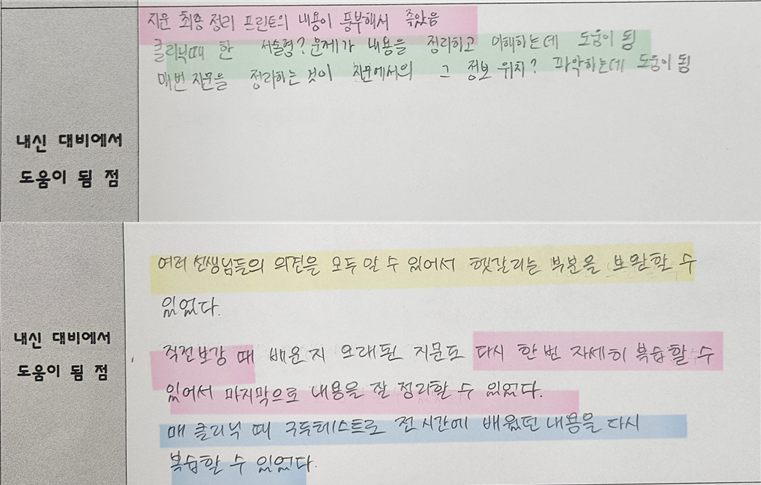 지문 최종 정리 프린트의 내용이 풍부해서 좋았음
클리닉때 한 서술형? 문제가 내용을 정리하고 이해하는데 도움이 됨
매번 지문을 정리하는 것이 지문에서의 그 정보 위치? 파악하는데 도움이 됨
내신 대비에서
도움이 됨 점
여러 선생님들의 의견을 모두 알 수 있어서 헷갈리는 부분을 보완할 수
있었다.
내신 대비에서
도움이 됨 점
직전보강 때 배운지 오래된 지문도 다시 한 번 자세히 복습할 수
있어서 마지막으로 내용을 잘 정리할 수 있었다.
매 클리닉 때 구두테스트로 전 시간에 배웠던 내용을 다시
복습할 수 있었다.